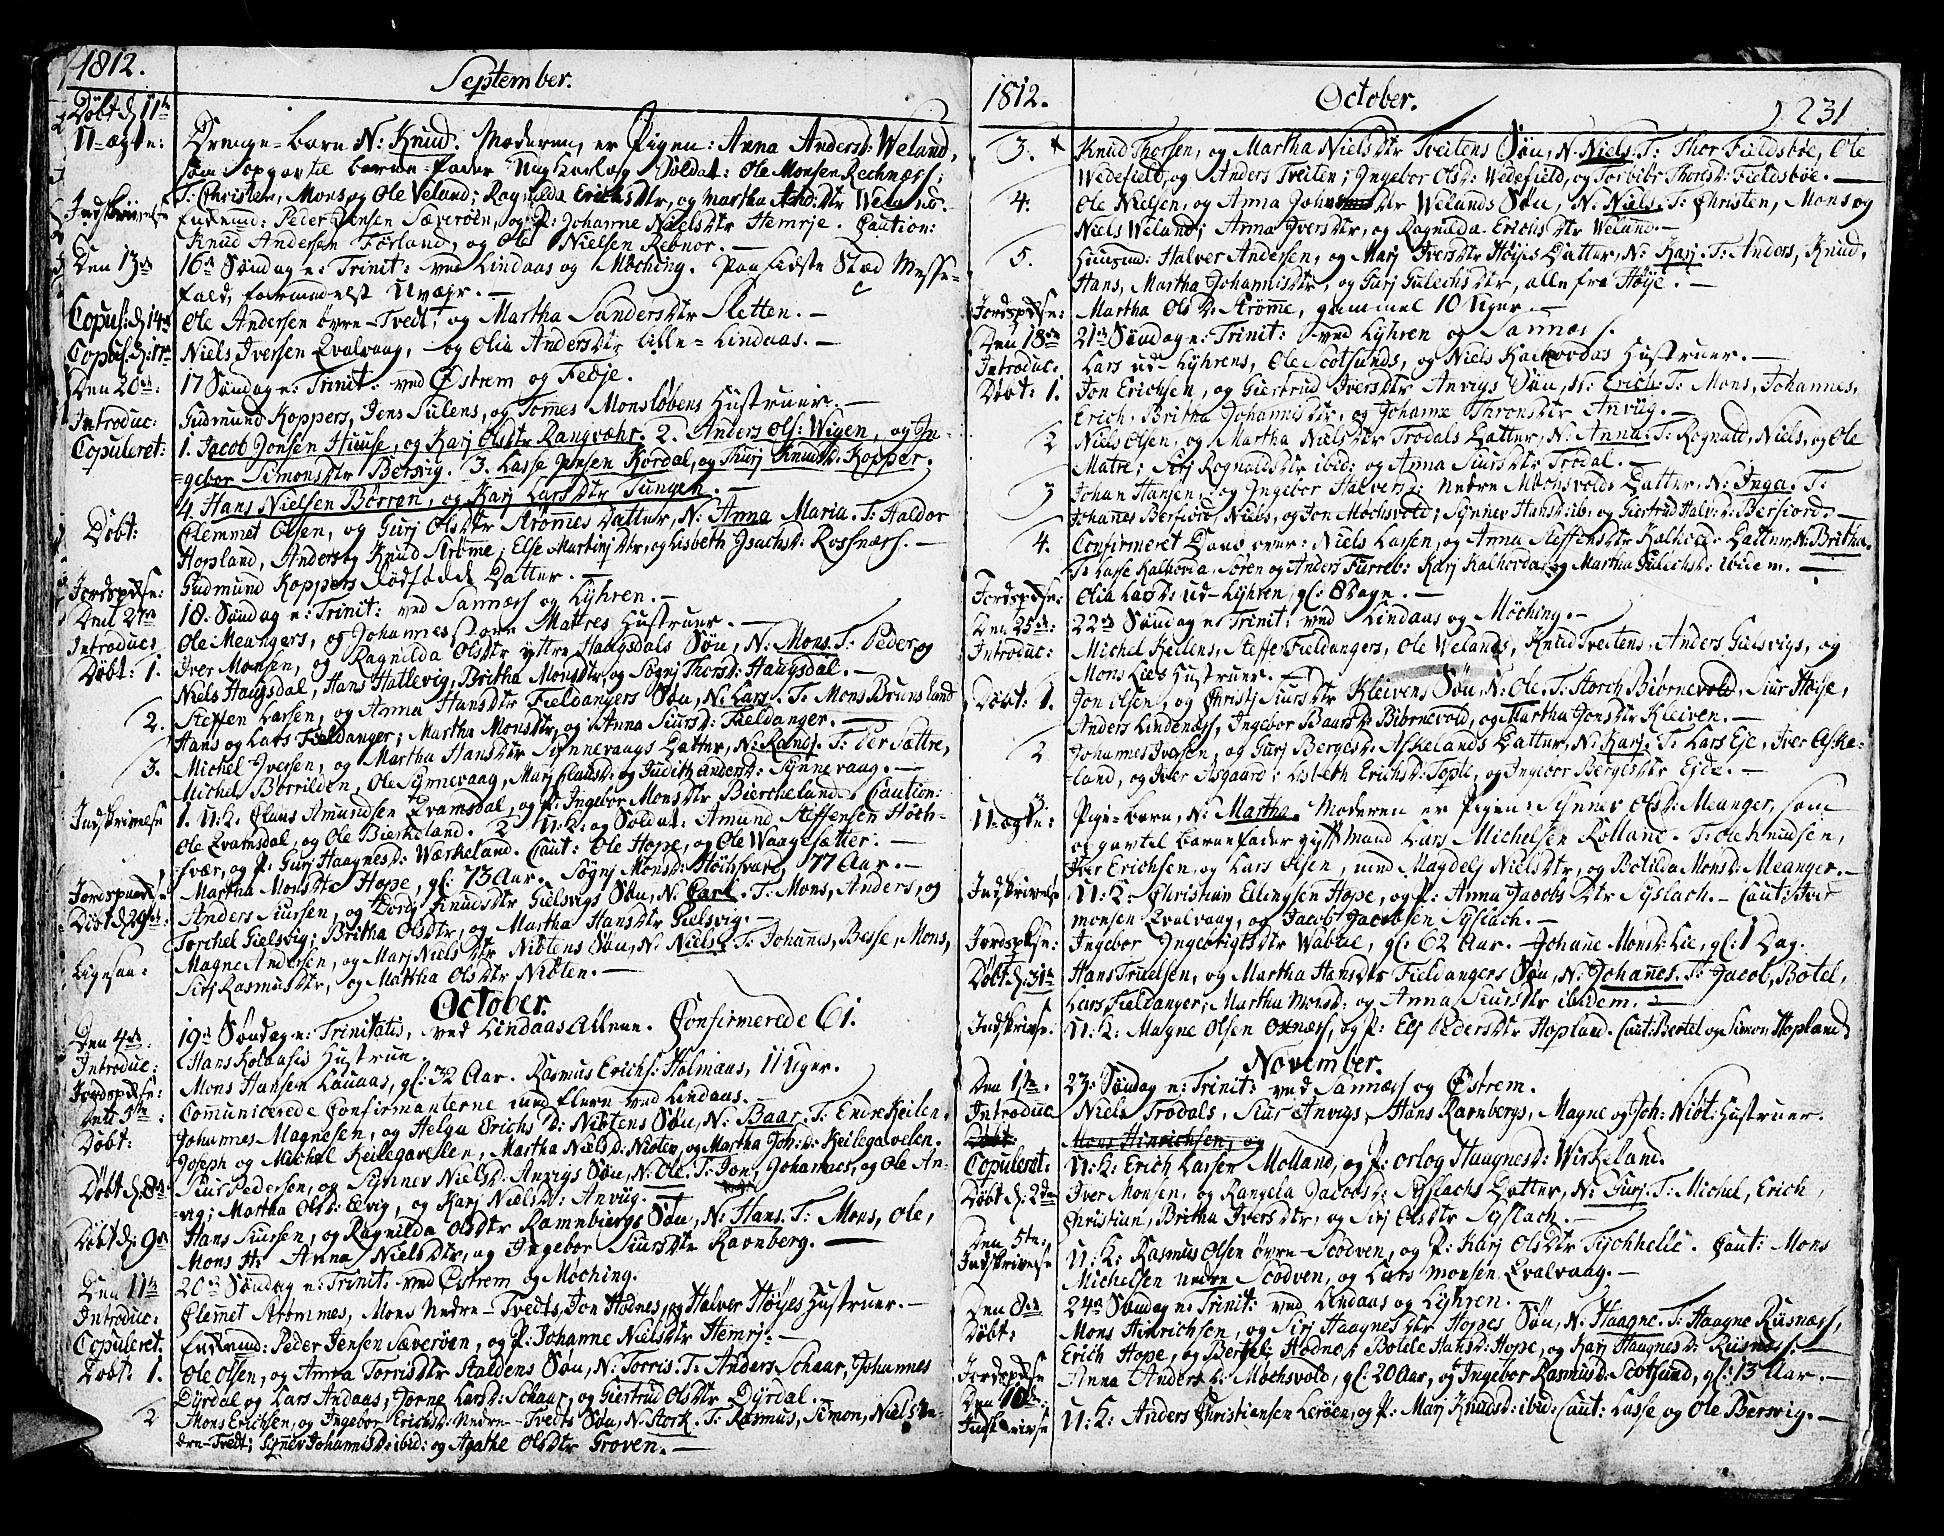 1812.
September.
Döbt d. 11te
U-ægte:
Drenge-barn N: Knud. Moderen, er Pigen: Anna Andersd: Weland,
som opgavtil barne-fader Ungkarlog Soldat: Ole Monsen Rechnæss;
T: Christen, Mons og Ole Veland; Ragnilda Erichsdtr, og Martha And:dtr Weland.
Indskrivelse
Enkemd: Peder Jensen Sæveröen, og P: Johanne Nielsdtr Hemrje. Caution:
Knud Andersen Förland, og Ole Nielsen Rebnor. —
Den 13de
16de Söndag e: Trinit: ved Lindaas og Möching. Paa sidste Stæd Messe-
fald, formedelst Uvejr. —
Copul: d. 14de
Ole Andersen övre-Tvedt, og Martha Sandersdtr Sletten. —
Copul. d: 17de
Niels Iversen Qvalvaag, og Olia Andersdtr lille-Lindaas. —
Den 20de:
17 Söndag e: Trinit: ved Østrem og Fedje.
Introduc:
Gudmund Koppers, Jens Sulens, og Tomes Monslöbens Hustruer. —
Copuleret:
1. Jacob Jonsen Huuse, og Karj Olsdtr Rangvahr. 2. Anders Ols: Wigen, og In-
=gebor Simonsdtr Bersvig. 3. Lasse Jensen Kordal, og Thurj Knudsd: Kopper.
4 Hans Nielsen Börrön, og Karj Larsdtr Tungen. —
Döbt:
Clemmet Olsen, og Gurj Olsdtr Strömes Datter, N: Anna Maria. T: Haldor
Hopland, Anders og Knud Ströme; Else Martinsdtr, og Lisbeth Isachsd: Rossnæss. —
Jordspdse:
Gudmund Koppers dödfödde Datter. —
Den 27de
18. Söndag e: Trinit: ved Sannæss og Lyhren. —
Introduc:
Ole Meangers, og Johannes store Matres Hustruer. —
Döbt: 1.
Iver Monsen, og Ragnilda Olsdtr yttre Haugsdals Sön, N: Mons. T: Peder og
Niels Haugsdal, Hans Hatlevig, Britha Monsdtr, og Sögnj Thorsd: Haugsdal. —
2.
Steffen Larsen, og Anna Hansdtr Fieldangers Sön, N: Lars. T: Mons Brunsland
Hans og Lars Fieldanger; Martha Monsdtr, og Anna Siursd: Fieldanger. —
3.
Michel Iversen, og Martha Hansdtr Synnevaags Datter, N: Randj. T: Per Sættre,
Michel Borrilden, Ole Synnevaag, Marj Clausd: og Judith Andersd: Synnevaag. —
Indskrivelse
1. U:K: Claus Amundsen Qvamsdal, og P: Ingebor Monsdtr Bierckeland. Caution:
Ole Qvamsdal, og Ole Bierkeland. 2 U:K: og Soldat: Amund Steffensen Höth-
svær, og P: Gurj Haagnesd: Wærkeland. Caut: Ole Hope, og Ole Waagesætter. —
Jordspaadse
Martha Monsdtr Hope, gl: 73 Aar. Sögnj Monsd: Höthsvær, 77 Aar. —
Döbt d. 29de:
Anders Siursen, og Dordj Knudsdtr Gielsvigs Sön, N: Carl. T: Mons, Anders, og
Torchel Gielsvig; Britha Olsdtr, og Martha Hansdtr Gielsvig. —
Ligesaa:
Magne Andersen, og Marj Nielsdtr Niötens Sön, N: Niels. T: Johanes, Besse, Mons,
Sirj Rasmusdtr, og Martha Olsdtr Niöten. —
October.
Den 4de.
19de Söndag e: Trinitatis, ved Lindaas Allene. Confirmerede 61.
Introduc:
Hans Kolaasis Hustrue.
Jordspdse:
Mons Hansen Lauaas, gl: 32 Aar. Rasmus Erichs: Holmaas, 11 Uger.
Den 5te:
Comunicerede Confirmanterne med flere ved Lindaas.
Döbt:
Johannes Magnesen, og Helga Erichs D: Niötens Sön, N: Baar. T: Endre Keilen,
Joseph og Michel Keilegavelen, Martha Nielsd: Niöten, og Martha Joh: d: Keilegavelen.
Döbt d: 8de
Siur Pedersen, og Synnev Nielsd: Anvigs Sön, N: Ole. T: Jon, Johannes, og Ole An-
vig; Martha Olsd: Eevig, og Karj Nielsd: Anviig. —
Döbt d. 9de
Hans Siursen, og Ragnilda Olsdtr Ramnbiergs Sön, N: Hans. T: Mons, Ole,
Mons H: Anna Nielsdtr, og Ingebor Siursdtr Ravnberg. —
Den 11te
20de Söndag e: Trinit: ved Østrem og Möching.
Introduc:
Clemet Strömmes, Mons Nedre-Tvedts, Jon Hodnes, og Halver Höyes Hustruer. —
Copuleret.
Enkemd: Peder Jensen Sæveröen, og P: Johanne Nielsdtr Hemrj. —
Döbt: 1.
Ole Olsen, og Anna Torrisdtr Staldens Sön, N: Torris. T: Anders Schaar, Johannes
Dyrdal og Lars Andaas; Jorne Larsd: Schaar, og Giertrud Olsdtr Dyrdal. —
2
Mons Erichsen, og Ingebor Erichsd: Nedre-Tvedts Sön, N: Stork. T: Rasmus, Simon, Niels Ne-
dre-Tvedt; Synev Johannisd: ibid: og Agathe Olsdtr Groven. —
1812.
October.
231
3.
Knud Thorsen, og Martha Nielsdtr Tveitens Sön, N: Niels. T: Thor Fieldsböe, Ole
Wedefield, og Anders Tveiten; Ingebor Olsd: Wedefield, og Torbibr Thorsd: Fieldsböe. —
4.
Ole Nielsen, og Anna Johnsdtr Welands Sön, N: Niels. T: Christen, Mons og
Niels Weland; Anna Iversdtr, og Ragnilda Erichsdtr Weland. —
5.
Huusmd: Halver Andersen, og Marj Iversdtr Höyes Datter, N: Karj. T: Anders, Knud,
Hans, Martha Johannisdtr, og Gurj Gulechsdtr, alle fra Höye. —
Jordspdse:
Martha Ols D: Ströme, gammel 10 Uger. —
Den 18de
21de Söndag e: Trinit: ved Lyhren og Sannæss.
Introduc:
Lars ud-Lyhrens, Ole Scotlunds, og Niels Kalhovdas Hustruer. —
Döbt: 1.
Jon Erichsen, og Giertrud Iversdtr Anvigs Sön, N: Erich. T: Mons, Johannes,
Erich, Britha Johannisdtr, og Johanne Thronsdtr Anviig. —
2
Niels Olsen, og Martha Nielsdtr Trodals Datter, N: Anna. T: Rognald, Niels, og Ole
Matre; Sirj Rognaldsdtr ibid: og Anna Siursdtr Trodal. —
3
Johan Hansen, og Ingebor Halversd: Nedre Moensvolds Datter, N: Inga. T:
Johanes Bersiord, Niels, og Jon Mochsvold; Synnev Hansd: ib: og Giertrud Halv: d: Bersiord. —
4.
Confirmeret Daab over: Niels Larsen, og Anna Steffensdtr Kalhovd: Datter, N: Britha.
T: Lasse Kalhovda, Sören og Anders Furreb: Karj Kalhovda og Martha Gulichsd: ibidem. —
Jordspdse:
Olia Larsd: ud-Lyhren, gl: 8 Dage. —
Den 25de:
22de Söndag e: Trinit: ved Lindaas og Möching. —
Introduc:
Michel Keilens, Steffen Fieldangers, Ole Welands, Knud Tveitens, Anders Gielsvigs, og
Mons Lies Hustruer. —
Döbt: 1.
Jon Olsen, og Christj Siursdtr Kleivens Sön, N: Ole. T: Storch Biörnevold, Siur Höye,
Anders Lindenæss, Ingebor Baarsd: Biörnevold, og Martha Jonsdtr Kleiven. —
2
Johannes Iversen, og Gurj Bergesd: Askelands Datter, N: Karj. T: Lars Eje, Iver Aske-
land, og Iver Asgaard; Lisbeth Erichsd: Topte, og Ingebor Bergesdtr Ejde. —
3.
U-ægte:
Pige-barn, N: Martha. Moderen er Pigen: Synnev Olsd: Meanger, som
opgavtil barnefader gyft Mand Lars Michelsen Kolland. T: Ole Knudsen,
Iver Erichsen, og Lars Olsen, med Magdelj Nielsdtr, og Botilda Monsd: Meanger. —
Indskrivelse
U:K: Christian Ellingsen Hope, og P: Anna Jacobs Dtr Syslach. — Caut: Iver
Monsen Qvalvaag, og Jacob Jacobsen Syslach. —
Jordspdse:
Ingebor Ingebrigtsdtr Wabøe, gl: 62 Aar. Johane Monsd: Lie, gl: 1 Dag.
Döbt d: 31te
Hans Truelsen, og Martha Hansdtr Fieldangers Sön, N: Johanes. T: Jacob, Botel,
Lars Fieldanger; Martha Monsd: og Anna Siursdtr ibidem. —
Indskrivse.
U:K: Magne Olsen Oxnæss, og P: Els Pedersdtr Hopland. Caut: Bertel og Simon Hopland.
November.
Den 1te.
23. Söndag e: Trinit: ved Sannæss og Østrem.
Introduc
Niels Trodals, Siur Anvigs, Hans Ravnbergs, Magne og Joh: Niöt: Hustruer.
Döbt
Mons Hinrichsen, og
Copuleret:
U:K: Erich Larsen Molland, og P: Orlog Haagnesd: Wirkeland.
Döbt d: 2den
Iver Monsen, og Rangela Jacobsd: Syslachs Datter, N: Gurj. T: Michel, Erich,
Christian, Britha Iversdtr, og Sirj Olsdtr Syslach. —
Den 5te:
Indskrivelse
U:K: Rasmus Olsen övre-Scodven, og P: Karj Olsdtr Tychhelle. Caut: Mons
Michelsen Nedre Scodven, og Lars Monsen Qvalvaag. —
Den 8de
24de Söndag e: Trinit: ved Lindaas og Lyhren.
Döbt:
Mons Hinrichsen, og Sirj Haagnesdtr Hopes Sön, N: Haagne. T: Haagne Riisnæss,
Erich Hope, og Berthel Hodnes; Botele Hansd: Hope, og Karj Haagnesd: Riisnæss. —
Jordspdse
Anna Andersd: Mochsvold, gl: 20 Aar, og Ingebor Rasmusd: Scotlund, gl: 13 Aar. —
Den 10de:
Indskrivse
U:K: Anders Christiansen Leröen, og P: Marj Knudsd: ibid: Caut: Lasse og Ole Bersvig. —